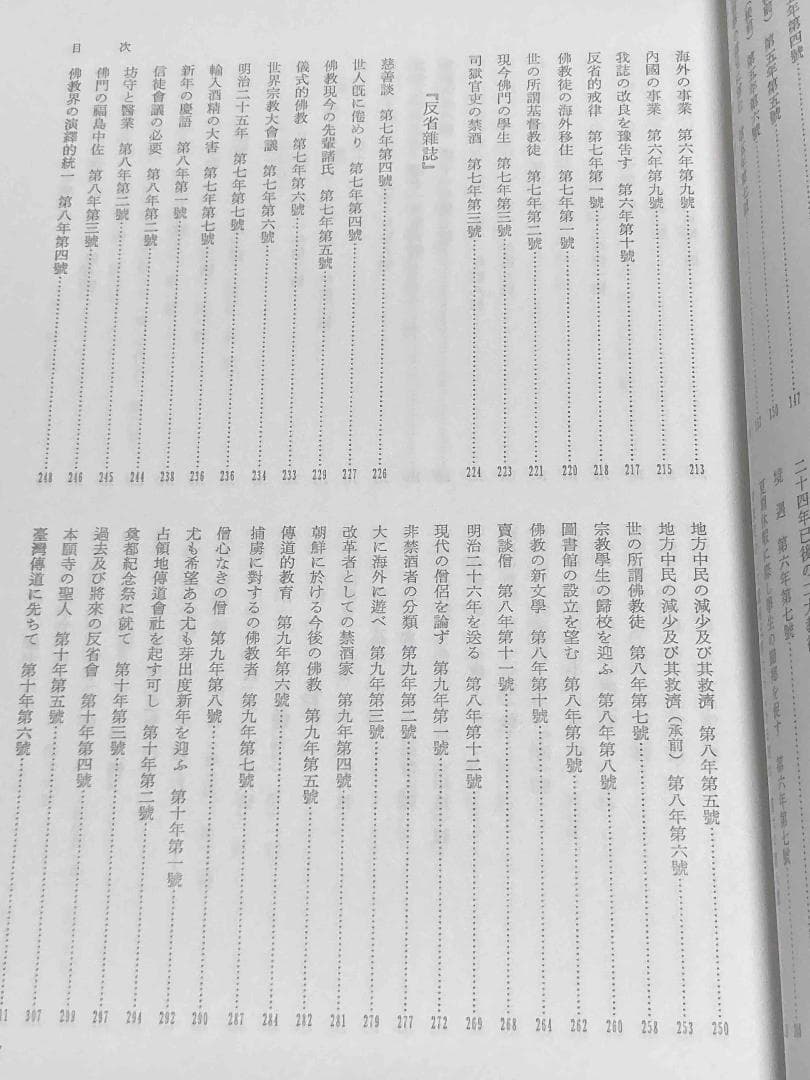 海外の事業　第六年第九號……213
內國の事業　第六年第九號……215
我誌の改良を豫告す　第六年第十號……217
反省的戒律　第七年第一號……218
佛教徒の海外移住　第七年第一號……220
世の所謂基督教徒　第七年第二號……221
現今佛門の學生　第七年第三號……223
司獄官吏の禁酒　第七年第三號……224
『反省雜誌』
慈善談　第七年第四號……226
世人旣に倦めり　第七年第四號……227
佛教現今の先輩諸氏　第七年第五號……229
儀式的佛教　第七年第六號……233
世界宗教大會議　第七年第六號……234
明治二十五年　第七年第七號……236
輸入酒精の大害　第七年第七號……236
新年の慶語　第八年第一號……238
信徒會議の必要　第八年第二號……244
坊守と醫業　第八年第二號……245
佛門の福島中佐　第八年第三號……246
佛教界の演繹的統一　第八年第四號……248
目次
地方中民の減少及び其救濟　第八年第五號……250
地方中民の減少及び其救濟（承前）　第八年第六號……253
世の所謂佛教徒　第八年第七號……258
宗教學生の歸校を迎ふ　第八年第八號……260
圖書館の設立を望む　第八年第九號……262
佛教の新文學　第八年第十號……264
賣談僧　第八年第十一號……268
明治二十六年を送る　第八年第十二號……269
現代の僧侶を論ず　第九年第一號……272
非禁酒者の分類　第九年第二號……277
大に海外に遊べ　第九年第三號……279
改革者としての禁酒家　第九年第四號……281
朝鮮に於ける今後の佛教　第九年第五號……282
傳道的教育　第九年第六號……284
捕虜に對するの佛教者　第九年第七號……287
僧心なきの僧　第九年第八號……290
尤も希望ある尤も芽出度新年を迎ふ　第十年第一號……292
占領地傳道會社を起す可し　第十年第二號……294
奠都紀念祭に就て　第十年第三號……297
過去及び將來の反省會　第十年第四號……299
本願寺の聖人　第十年第五號……307
臺灣傳道に先ちて　第十年第六號……